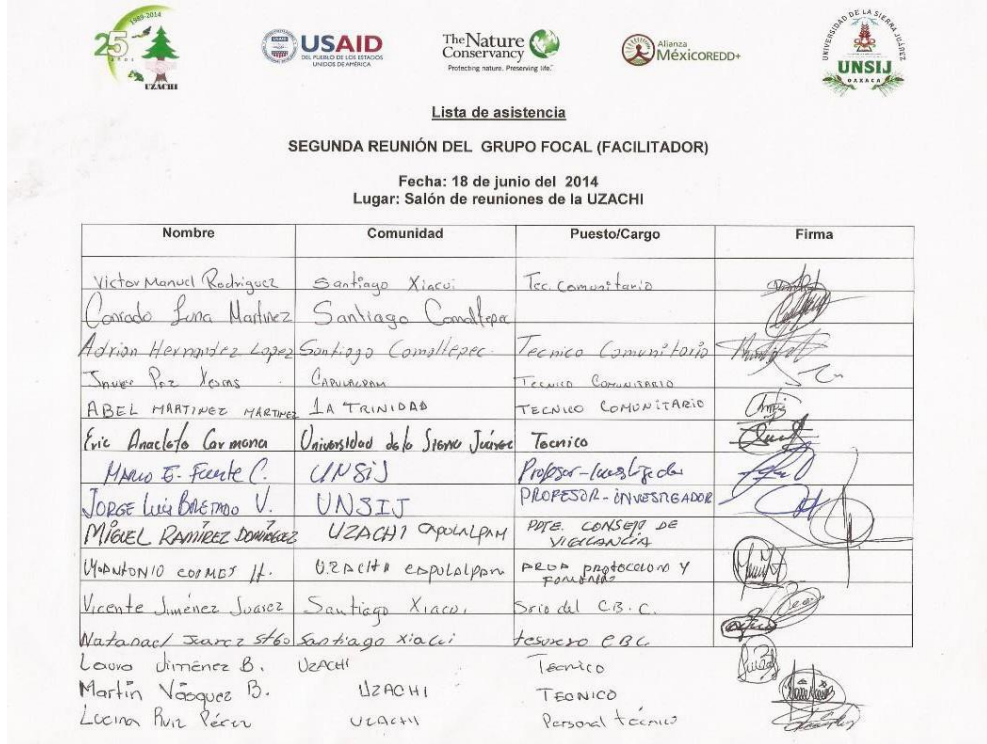 1989-2014
25
AÑOS
UZACHI
USAID
DEL PUEBLO DE LOS ESTADOS
UNIDOS DE AMÉRICA
The Nature
Conservancy
Protecting nature. Preserving life.
Alianza
MéxicoREDD+
UNIVERSIDAD DE LA SIERRA JUÁREZ
UNSIJ
OAXACA
Lista de asistencia
SEGUNDA REUNIÓN DEL GRUPO FOCAL (FACILITADOR)
Fecha: 18 de junio del 2014
Lugar: Salón de reuniones de la UZACHI
Nombre Comunidad Puesto/Cargo Firma
Victor Manuel Rodriguez Santiago Xiacui Tec. Comunitario
Conrado Luna Martinez Santiago Comaltepec
Adrian Hernandez Lopez Santiago Comaltepec. Tecnico Comunitario
Javier Paz CAPULALPAM TECNICO COMUNITARIO
ABEL MARTINEZ MARTINEZ LA TRINIDAD TECNICO COMUNITARIO
Eric Anacleto Carmona Universidad de la Sierra Juárez Tecnico
MARIO E. Fuente C. UNSIJ Profesor-Investigador
JORGE Luis BRETADO V. UNSIJ PROFESOR-INVESTIGADOR
MIGUEL RAMÍREZ DOMÍNGUEZ UZACHI CAPULALPAM PDTE. CONSEJO DE
VIGILANCIA
ANTONIO COSMES H. UZACHI CAPULALPAM AREA PROTOCOLO Y
FOMENTO
Vicente Jiménez Juarez Santiago Xiacui Srio del C.B.C.
Natanael Juarez Santiago Xiacui tesorero CBC
Lauro Jiménez B. UZACHI Tecnico
Martín Vásquez B. UZACHI TECNICO
Lucina Ruiz Pérez UZACHI Personal técnico